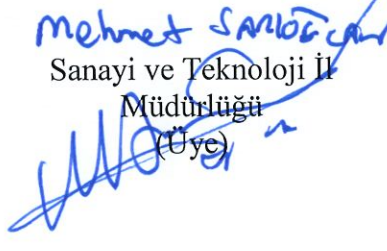 Mehmet
Sanayi ve Teknoloji İl
Müdürlüğü
(Üye)